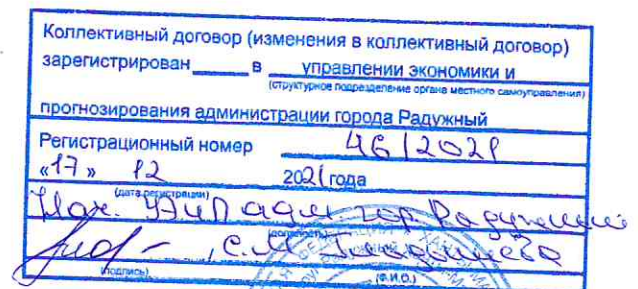 Коллективный договор (изменения в коллективный договор)
зарегистрирован в управлении экономики и
(структурное подразделение органа местного самоуправления)
прогнозирования администрации города Радужный
Регистрационный номер 46/2021
«17» 12 2021 года
(дата регистрации)
Нач. УЭиП адм. гор. Радужный
(должность)
, С.М.
(подпись) (Ф.И.О.)